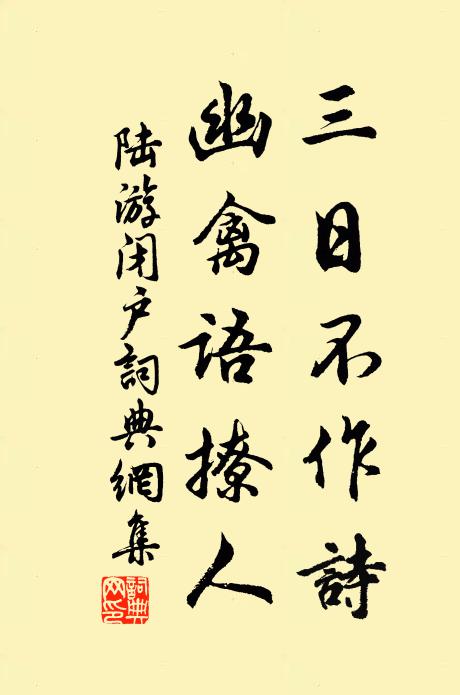 三日不作詩
幽禽語撩人
陆游闭户詞典網集
詞典网印